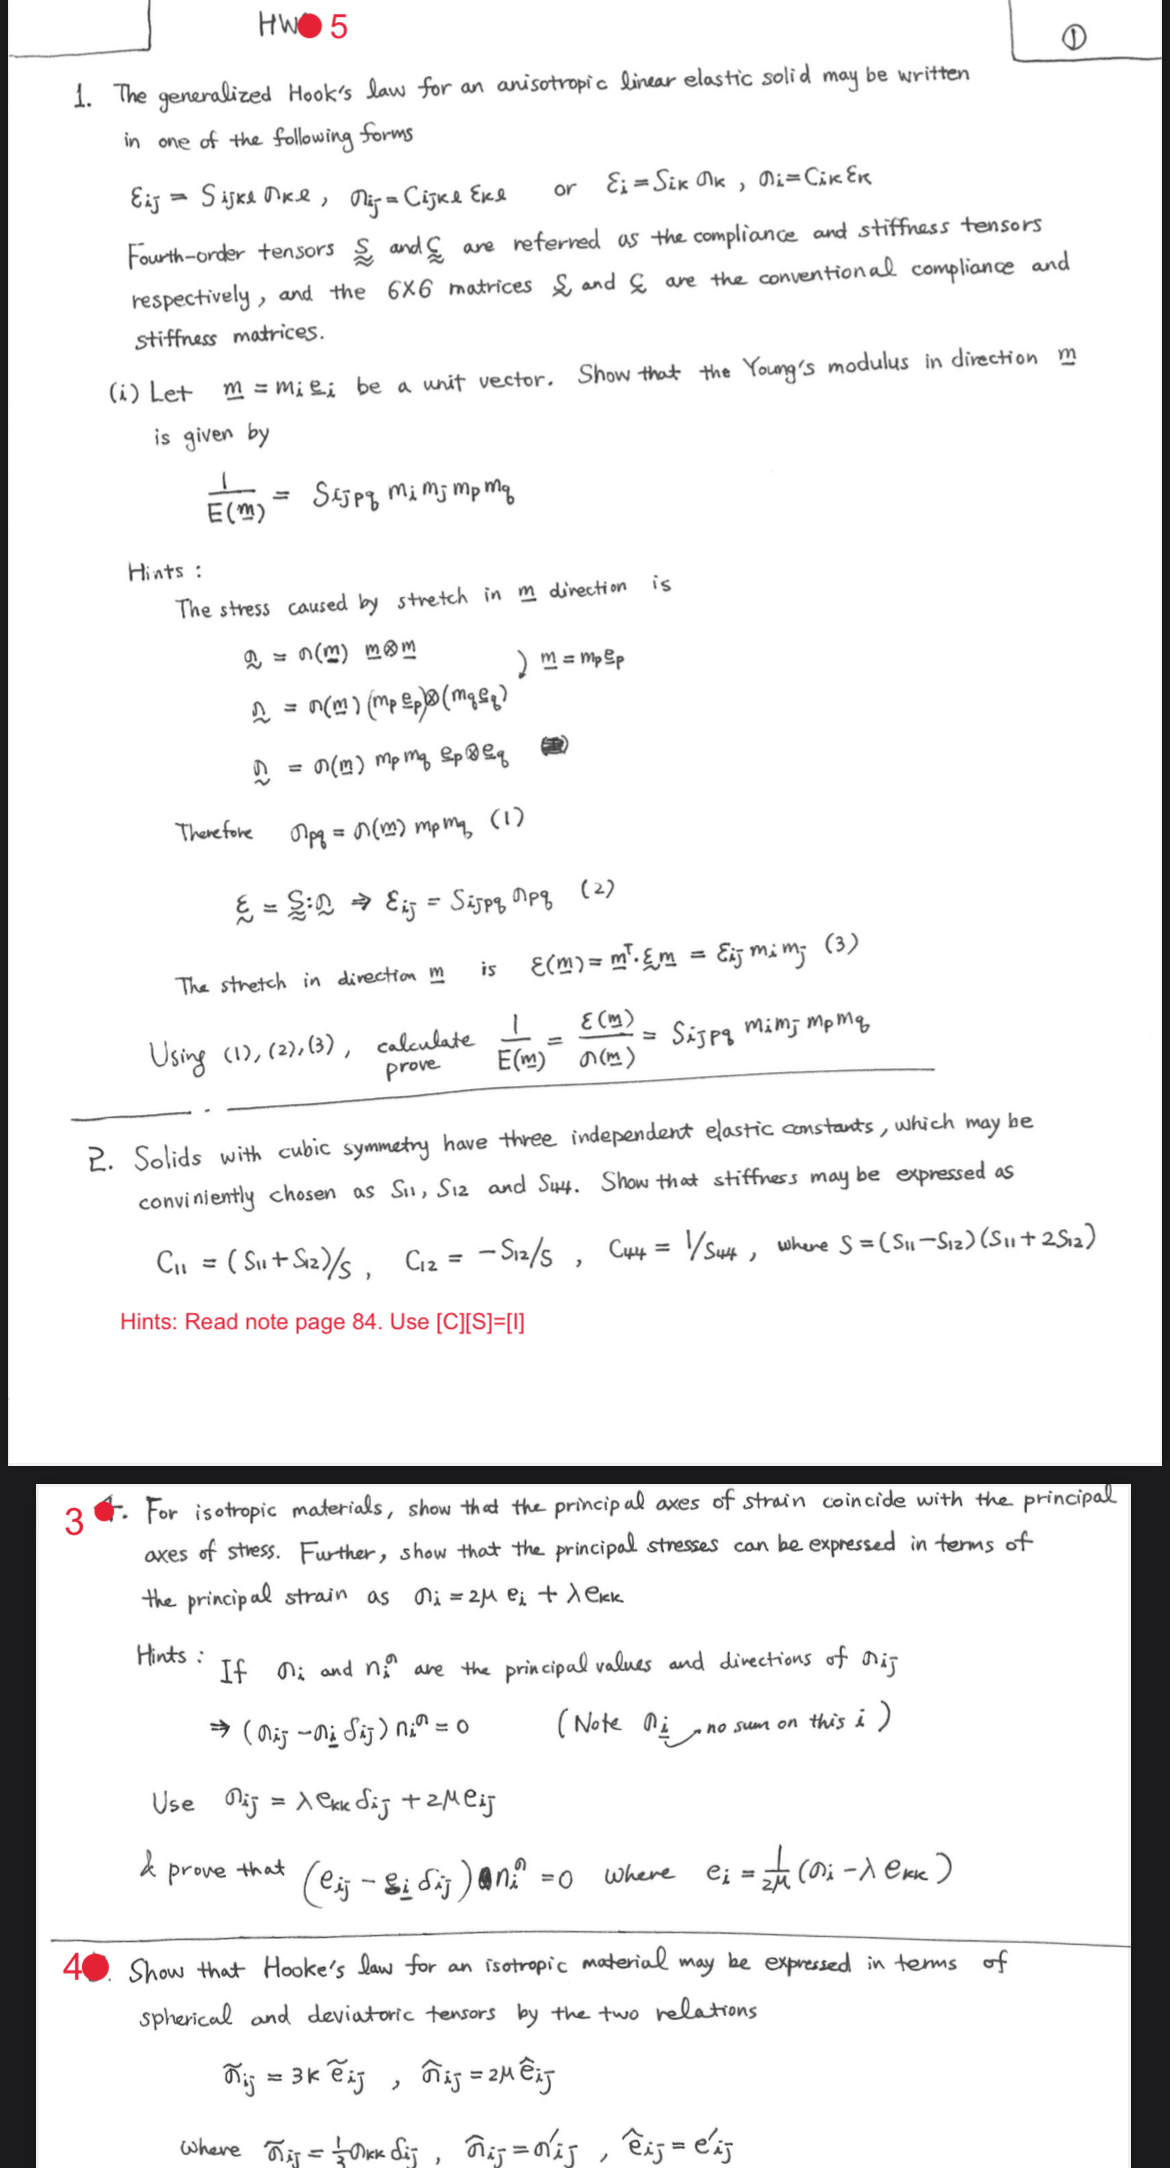 HW 5
①
1. The generalized Hook's law for an anisotropic linear elastic solid may be written
in one of the following forms
εij = Sijkl σkl , σij = Cijkl εkl or εi = Sik σk , σi = Cik εk
Fourth-order tensors S and C are referred as the compliance and stiffness tensors
respectively, and the 6×6 matrices S and C are the conventional compliance and
stiffness matrices.
(i) Let m = mi ei be a unit vector. Show that the Young's modulus in direction m
is given by
1/E(m) = Sijpq mi mj mp mq
Hints :
The stress caused by stretch in m direction is
σ = σ(m) m⊗m
) m = mp ep
σ = σ(m) (mp ep)⊗(mq eq)
σ = σ(m) mp mq ep⊗eq
Therefore σpq = σ(m) mp mq (1)
ε = S:σ ⇒ εij = Sijpq σpq (2)
The stretch in direction m is ε(m) = mᵀ·εm = εij mi mj (3)
Using (1), (2), (3), calculate prove 1/E(m) = ε(m)/σ(m) = Sijpq mi mj mp mq
2. Solids with cubic symmetry have three independent elastic constants, which may be
conviniently chosen as S11, S12 and S44. Show that stiffness may be expressed as
C11 = (S11+S12)/S , C12 = -S12/S , C44 = 1/S44 , where S = (S11-S12)(S11+2S12)
Hints: Read note page 84. Use [C][S]=[I]
3 . For isotropic materials, show that the principal axes of strain coincide with the principal
axes of stress. Further, show that the principal stresses can be expressed in terms of
the principal strain as σi = 2μ ei + λekk
Hints : If σi and ni^σ are the principal values and directions of σij
⇒ (σij - σi δij) ni^σ = 0 (Note σi no sum on this i)
Use σij = λekk δij + 2μeij
& prove that (eij - ei δij) ni^σ = 0 where ei = 1/2μ (σi - λ ekk)
4 . Show that Hooke's law for an isotropic material may be expressed in terms of
spherical and deviatoric tensors by the two relations
σ̃ij = 3k ẽij , σ̂ij = 2μ êij
where σ̃ij = 1/3 σkk δij , σ̂ij = σ'ij , êij = e'ij